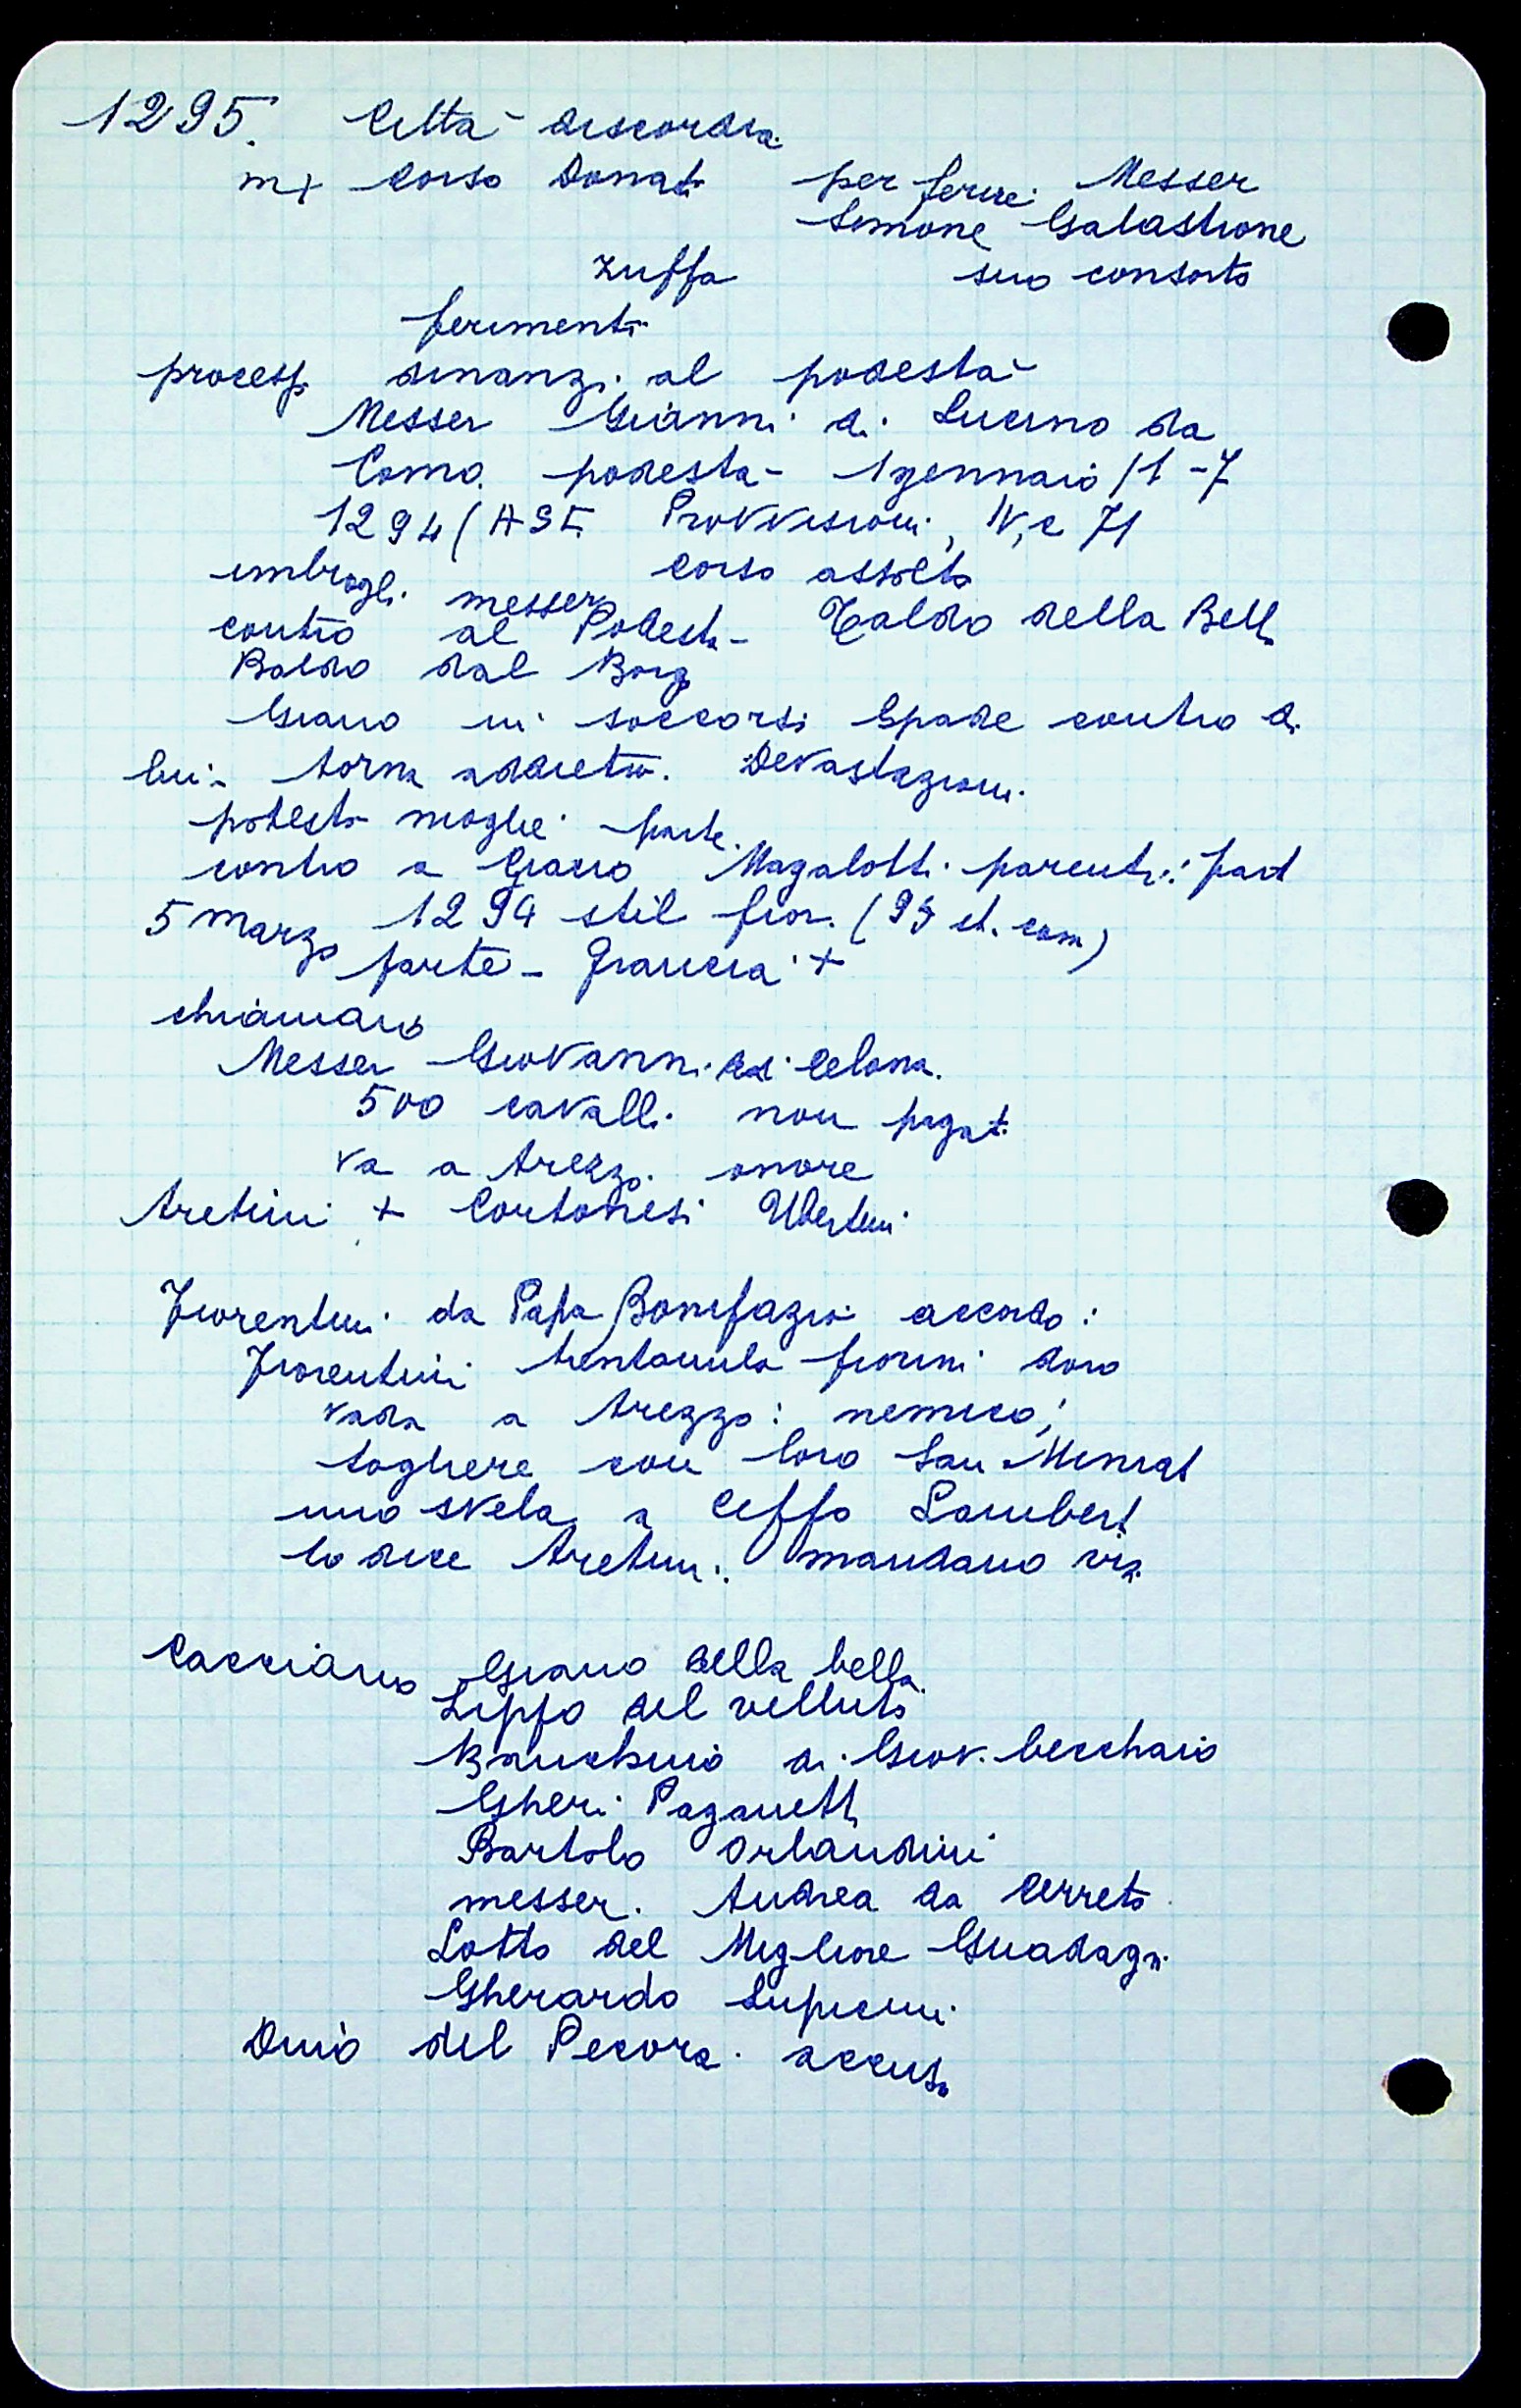 1295. Città discordia
m+ Corso Donati per ferire Messer
Simone Galastrone
zuffa suo consorto
ferimenti
process. dinanzi al podestà
Messer Gianni di Lucino da
Como. podestà - 1 gennaio / 1 - 7
1294 (ASF. Provvisioni, IV, c 71
imbrogli messer Corso assolto
contro al Podestà - Taldo della Bella
Baldo dal Borgo
Giano in soccorso Spade contro di
lui: torna addietro. Devastazioni.
podestà moglie parte.
contro a Giano Magalotti parenti: part
5 marzo 1294 stil fior. (95 st. com)
parte - Francia +
chiamano
Messer Giovanni di Celona.
500 cavalli non pagati
va a Arezzo. onore
Aretini + Cortonesi Ubertini
Fiorentini da Papa Bonifazio accordo:
Fiorentini trentamila fiorini doro
vada a Arezzo: nemico;
togliere con loro San Miniat
uno svela a Ceffo Lambert
lo dice Aretini. mandano via.
Cacciano Giano della bella.
Lippo del velluto
Banchino di Giov. becchaio
Gheri Paganetti
Bartolo Orlandini
messer. Andrea da Cerreto
Lotto del Migliore Guadagni
Gherardo Lupicini
Duio del Pecora accusa